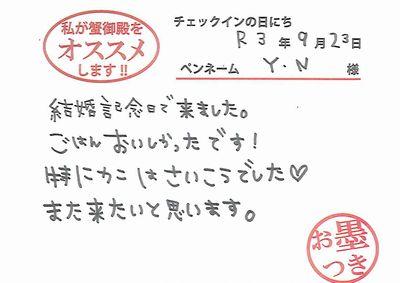 私が蟹御殿を
オススメ
します!!
チェックインの日にち
R3年9月23日
ペンネーム Y.N 様
結婚記念日で来ました。
ごはんおいしかったです!
特にカニはさいこうでした♡
また来たいと思います。
お墨
つき